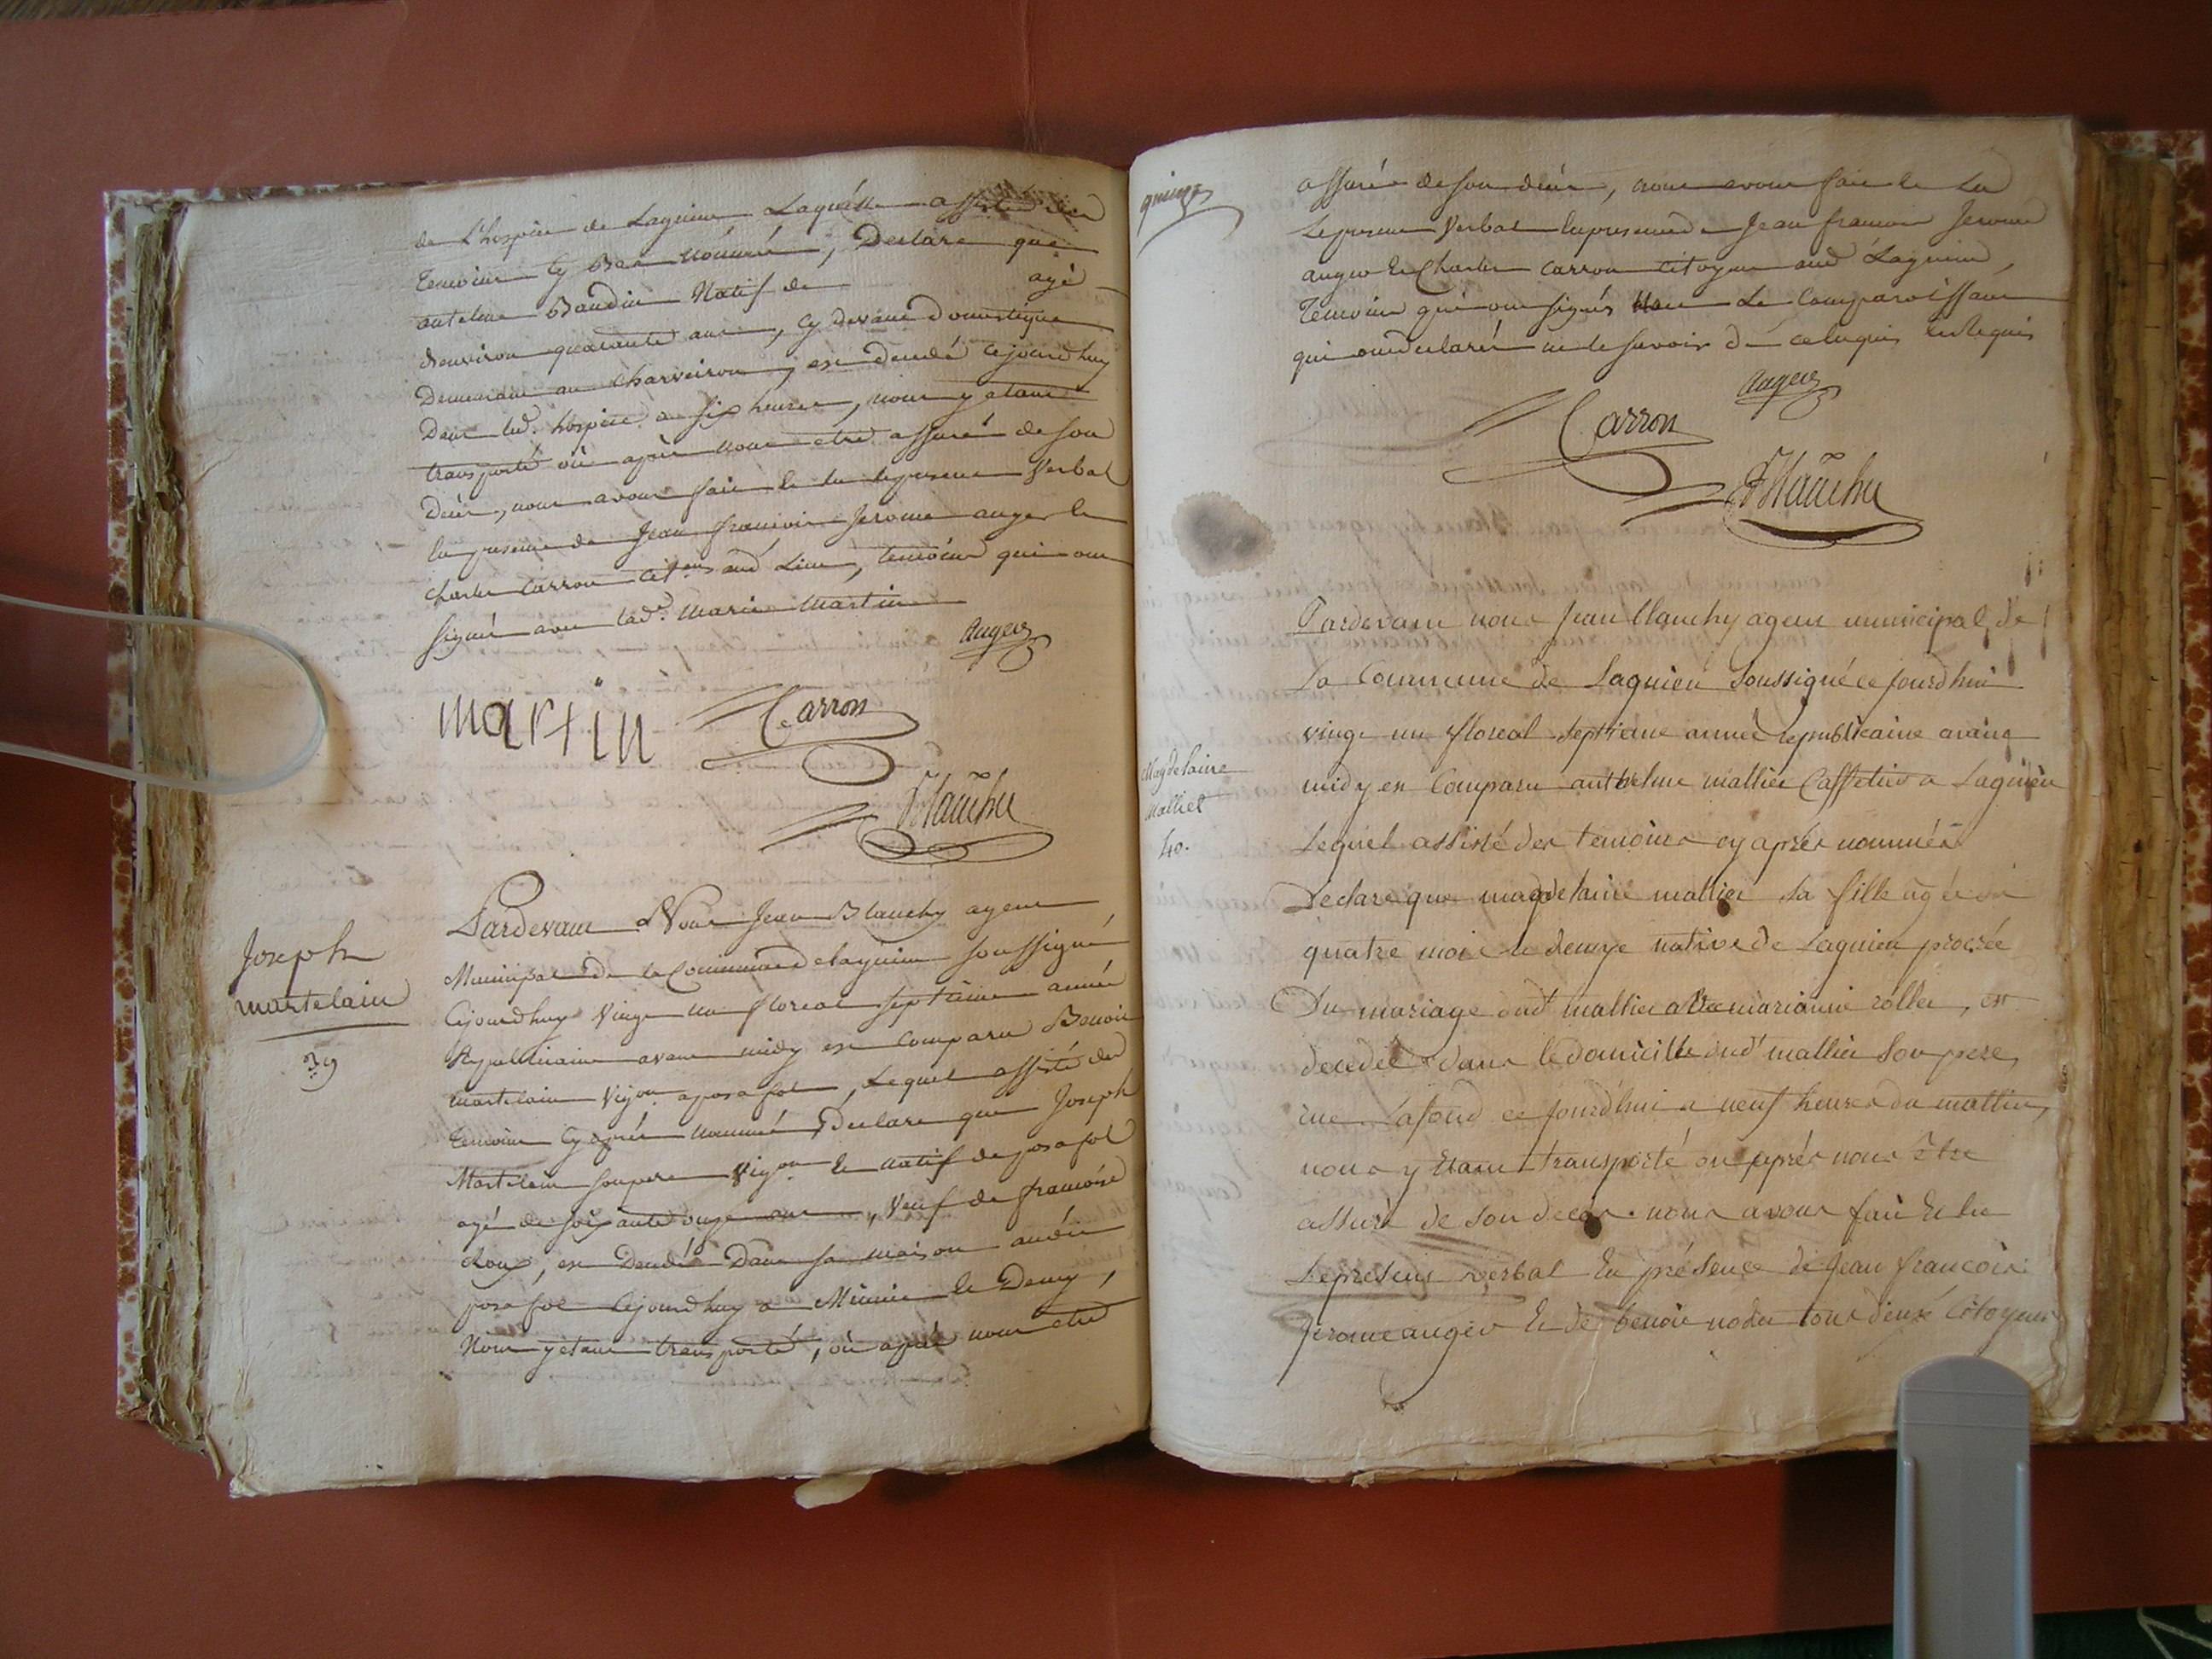 de L'hospice de Lagnieu Laquelle assistée des
temoins Cy Bas nommés, Declare que
antelme Baudin Natif de agé
denviron quarante ans, Cy devant domestique
Demeurant au Charveiron, est decedé cejourdhuy
Dans lud. hospice a six heures, nous y etant
transporté où après nous etre assuré de son
Decès, nous avons fait le lu le present Verbal
En presence de Jean francois Jerome auger et
Charles Carron cit.ens aud Lieu, temoins qui ont
signé avec lad.e marie martin
Auger
martin
Carron
JBlanchy
Joseph
martelain
39
Pardevant Nous Jean Blanchy agent
Municipal de la Commune de lagnieu soussigné
Cejourdhuy Vingt un floreal septième année
Republicaine avant midy est comparu Benoit
martelain Vig.on a posafol, Lequel assisté des
temoins Cy après nommés, Declare que Joseph
Martelain son pere Vig.on et natif de posafol
agé de soixante onze ans, Veuf de francoise
Roux, est Decedé Dans sa maison audit
posafol Cejourdhuy a Minuit et Demy,
Nous y etant transporté, où après nous etre
quinze
assuré de son decès, nous avons fait et lu
Le present Verbal En presence de Jean francois Jerome
auger et Charles Carron citoyens aud Lagnieu,
temoins qui ont signés Non Le Comparoissant
qui a declaré ne le savoir de ce enquis et Requis
Auger
Carron
JBlanchy
Magdelaine
Mallier
40.
Pardevant nous Jean Blanchy agent municipal de
La Commune de Lagnieu soussigné ce jourdhui
vingt un floreal septieme année republicaine avant
midy est Comparu anthelme mallier Caffetier a Lagnieu
Lequel assisté des temoins cy après nommés
Declare que magdelaine mallier sa fille agée de
quatre mois et demye native de Lagnieu procrée
Du mariage dud.t mallier avec marianne rollet, est
decedée dans le domicille dud.t mallier son pere,
rue Lafond ce jourdhui a neuf heures du mattin,
nous y Etant transporté ou après nous être
assuré de son decès. nous avons fait Et lu
Le present verbal En présence de Jean françois
jerome auger Et de benoit nodet tous deux Citoyens